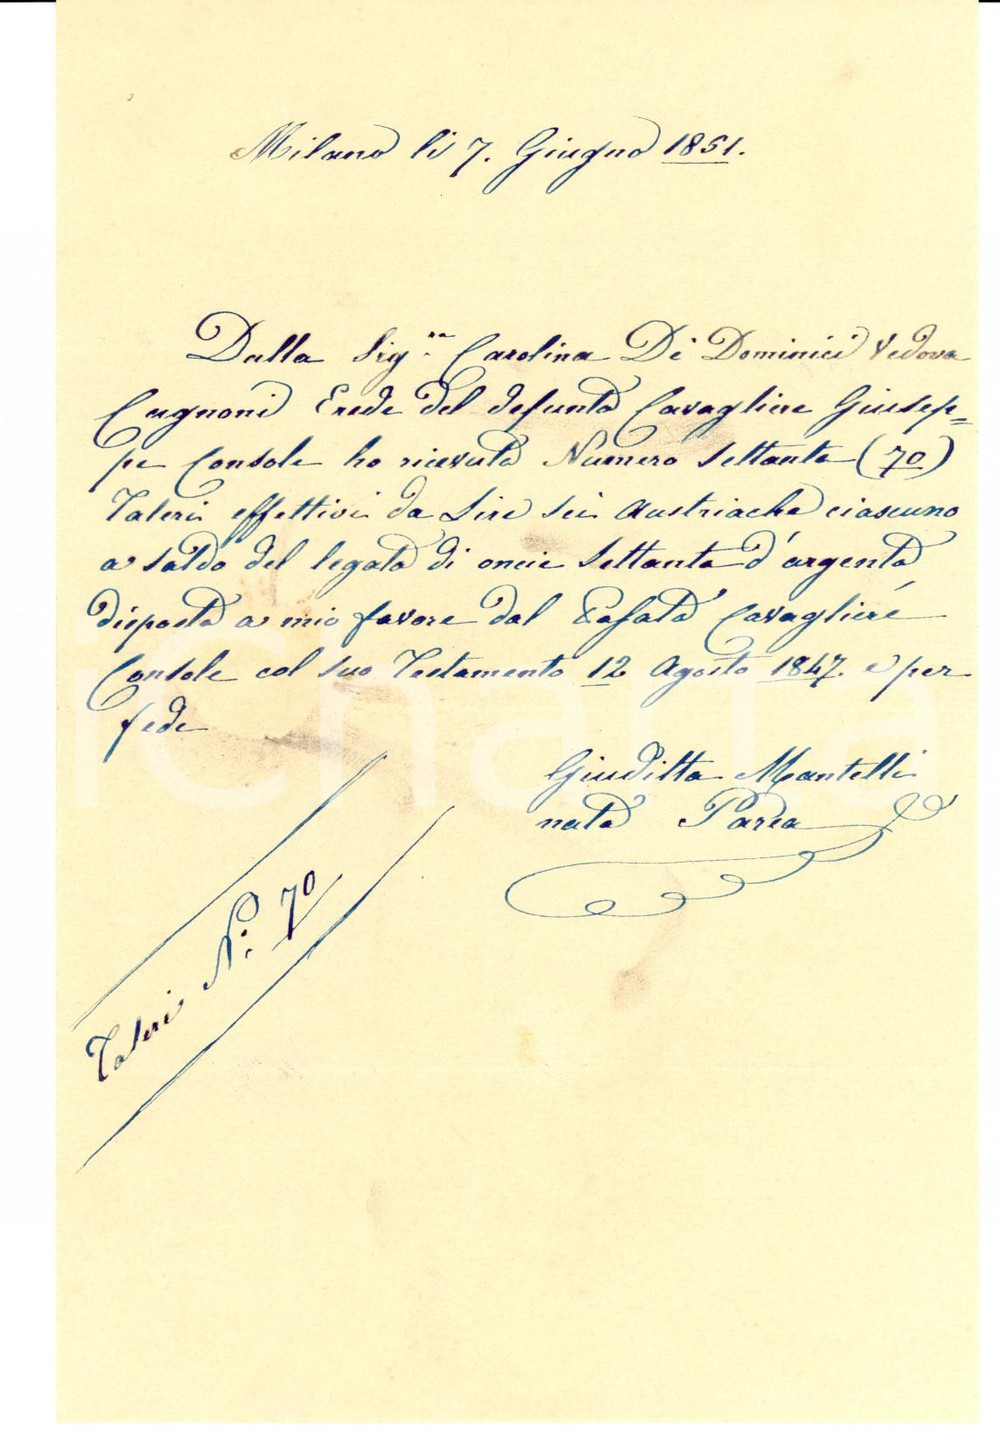 Milano li 7. Giugno 1851.
Dalla Sig.ra Carolina De Dominici Vedova
Cugnoni Erede del defunto Cavagliere Giusep=
pe Console ho ricevuto Numero Settanta (70)
Taleri effettivi da Lire sei Austriache ciascuno
a saldo del legato di oncie Settanta d'argento
disposto a mio favore dal Lodato Cavagliere
Console col suo Testamento 12 Agosto 1847. e per
fede
Giuditta Mantelli
nata Parea
Taleri N.º 70